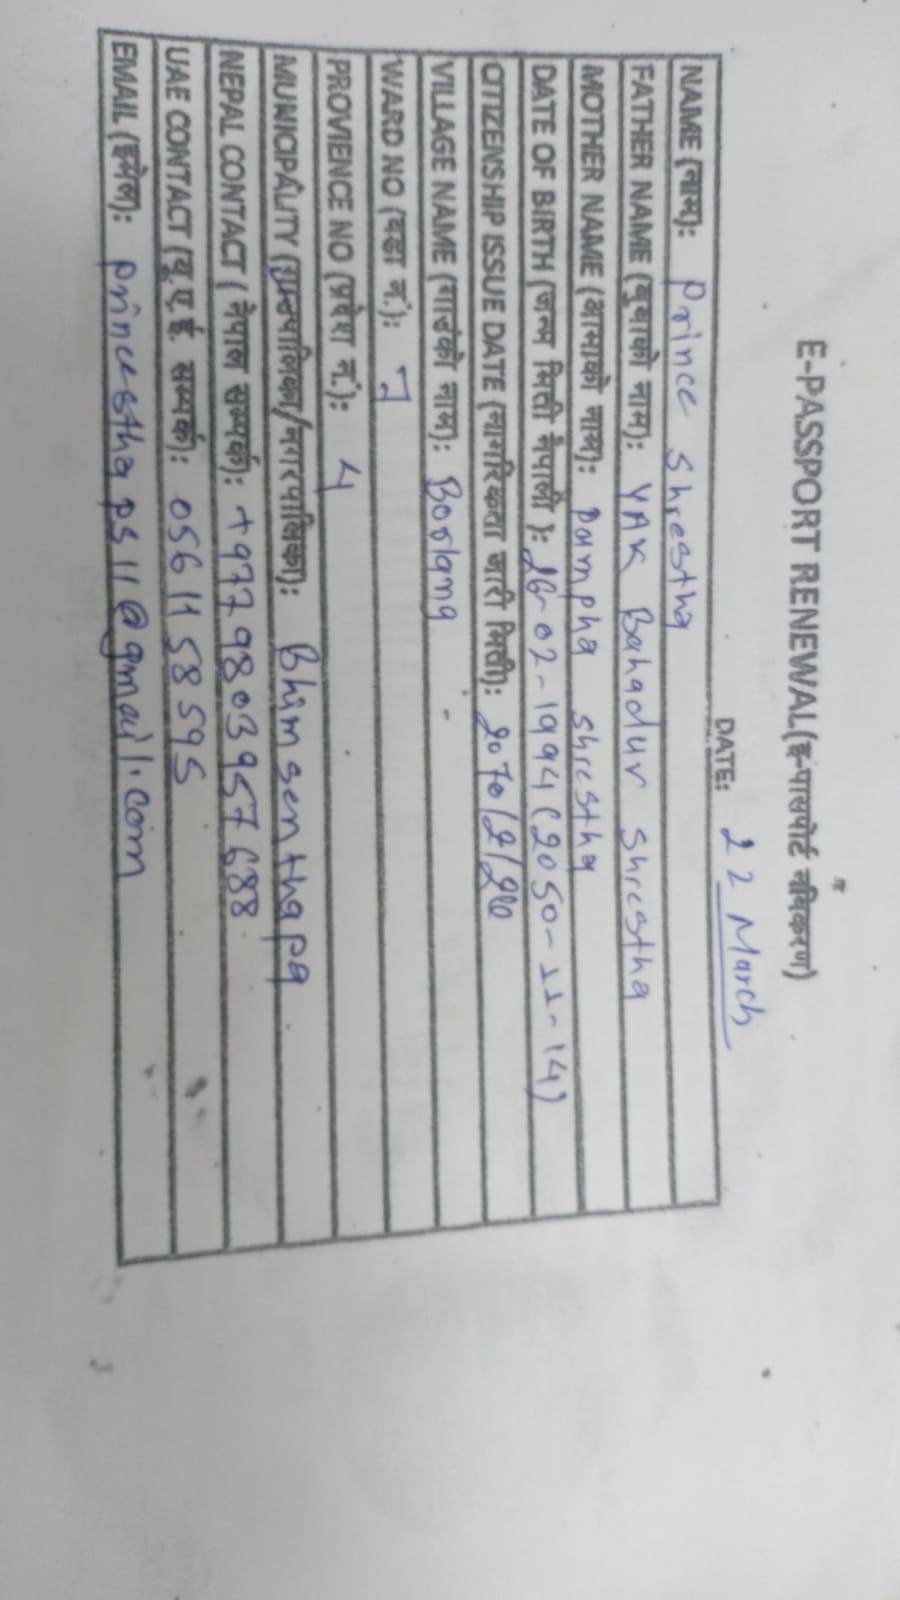 E-PASSPORT RENEWAL(इ-पासपोर्ट नविकरण)
DATE: 22 March
NAME (नाम): Prince Shrestha
FATHER NAME (बुवाको नाम): YAK Bahadur Shrestha
MOTHER NAME (आमाको नाम): Pampha Shrestha
DATE OF BIRTH (जन्म मिती नेपाली ): 26-02-1994 (2050-11-14)
CITIZENSHIP ISSUE DATE (नागरिकता जारी मिती): 2070/2/26
VILLAGE NAME (गाउंको नाम): Borlang
WARD NO (वडा नं.): 7
PROVIENCE NO (प्रदेश नं.): 4
MUNICIPALITY (गाउपालिका/नगरपालिका): Bhimsenthapa
NEPAL CONTACT ( नेपाल सम्पर्क): +9779803957688
UAE CONTACT (यू.ए.ई. सम्पर्क): 0561158595
EMAIL (इमेल): princesthaps11@gmail.com